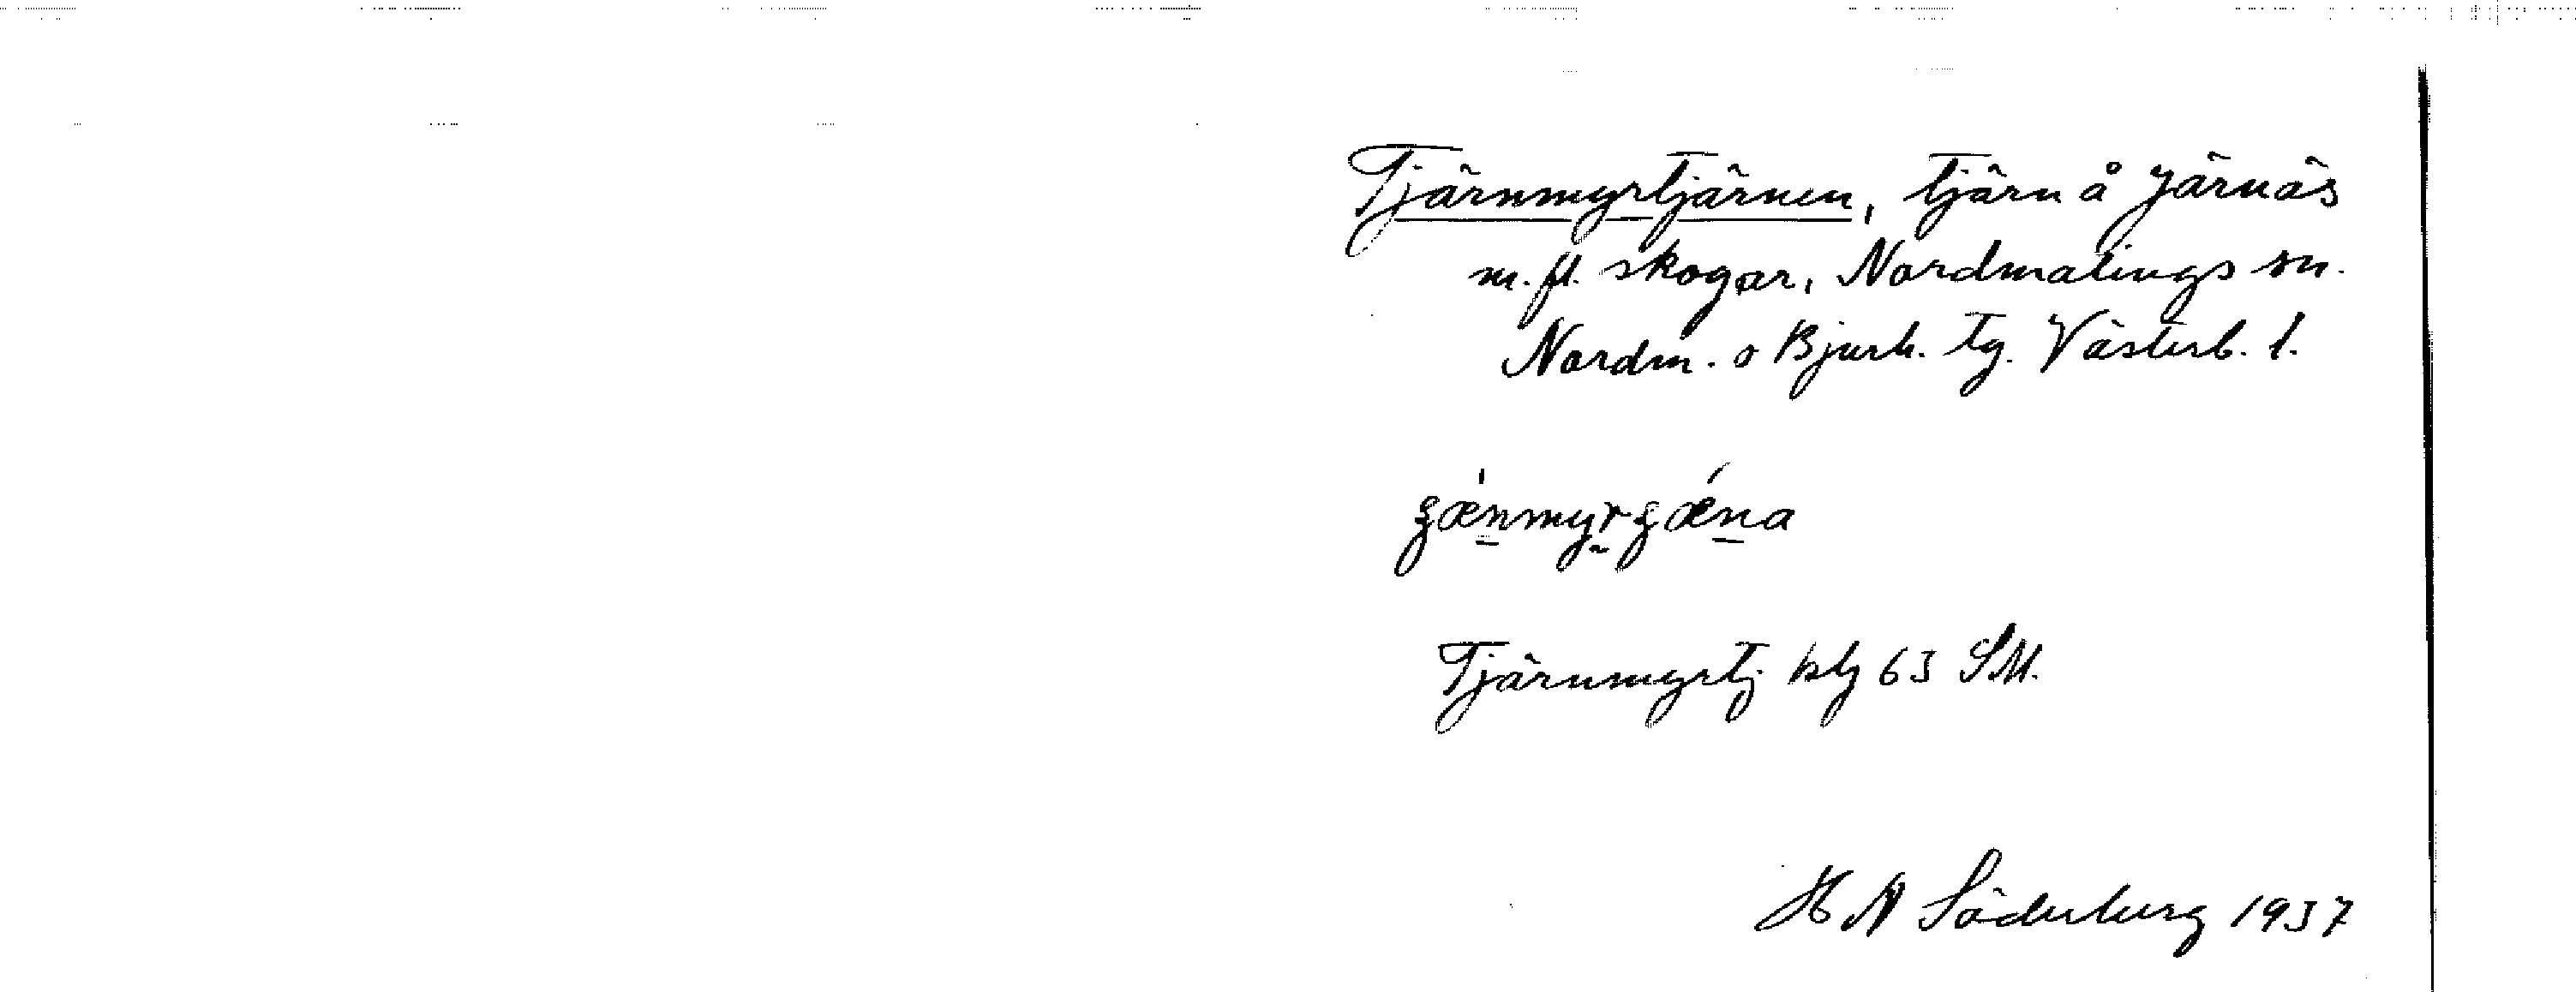 Tjärnmyrtjärnen, tjärn å Järnäs
m. fl. skogar, Nordmalings sn.
Nordm. o Bjurh. tg. Västerb. l.
Tjärnmyrtj blg 63 SM.
H N Söderberg 1937